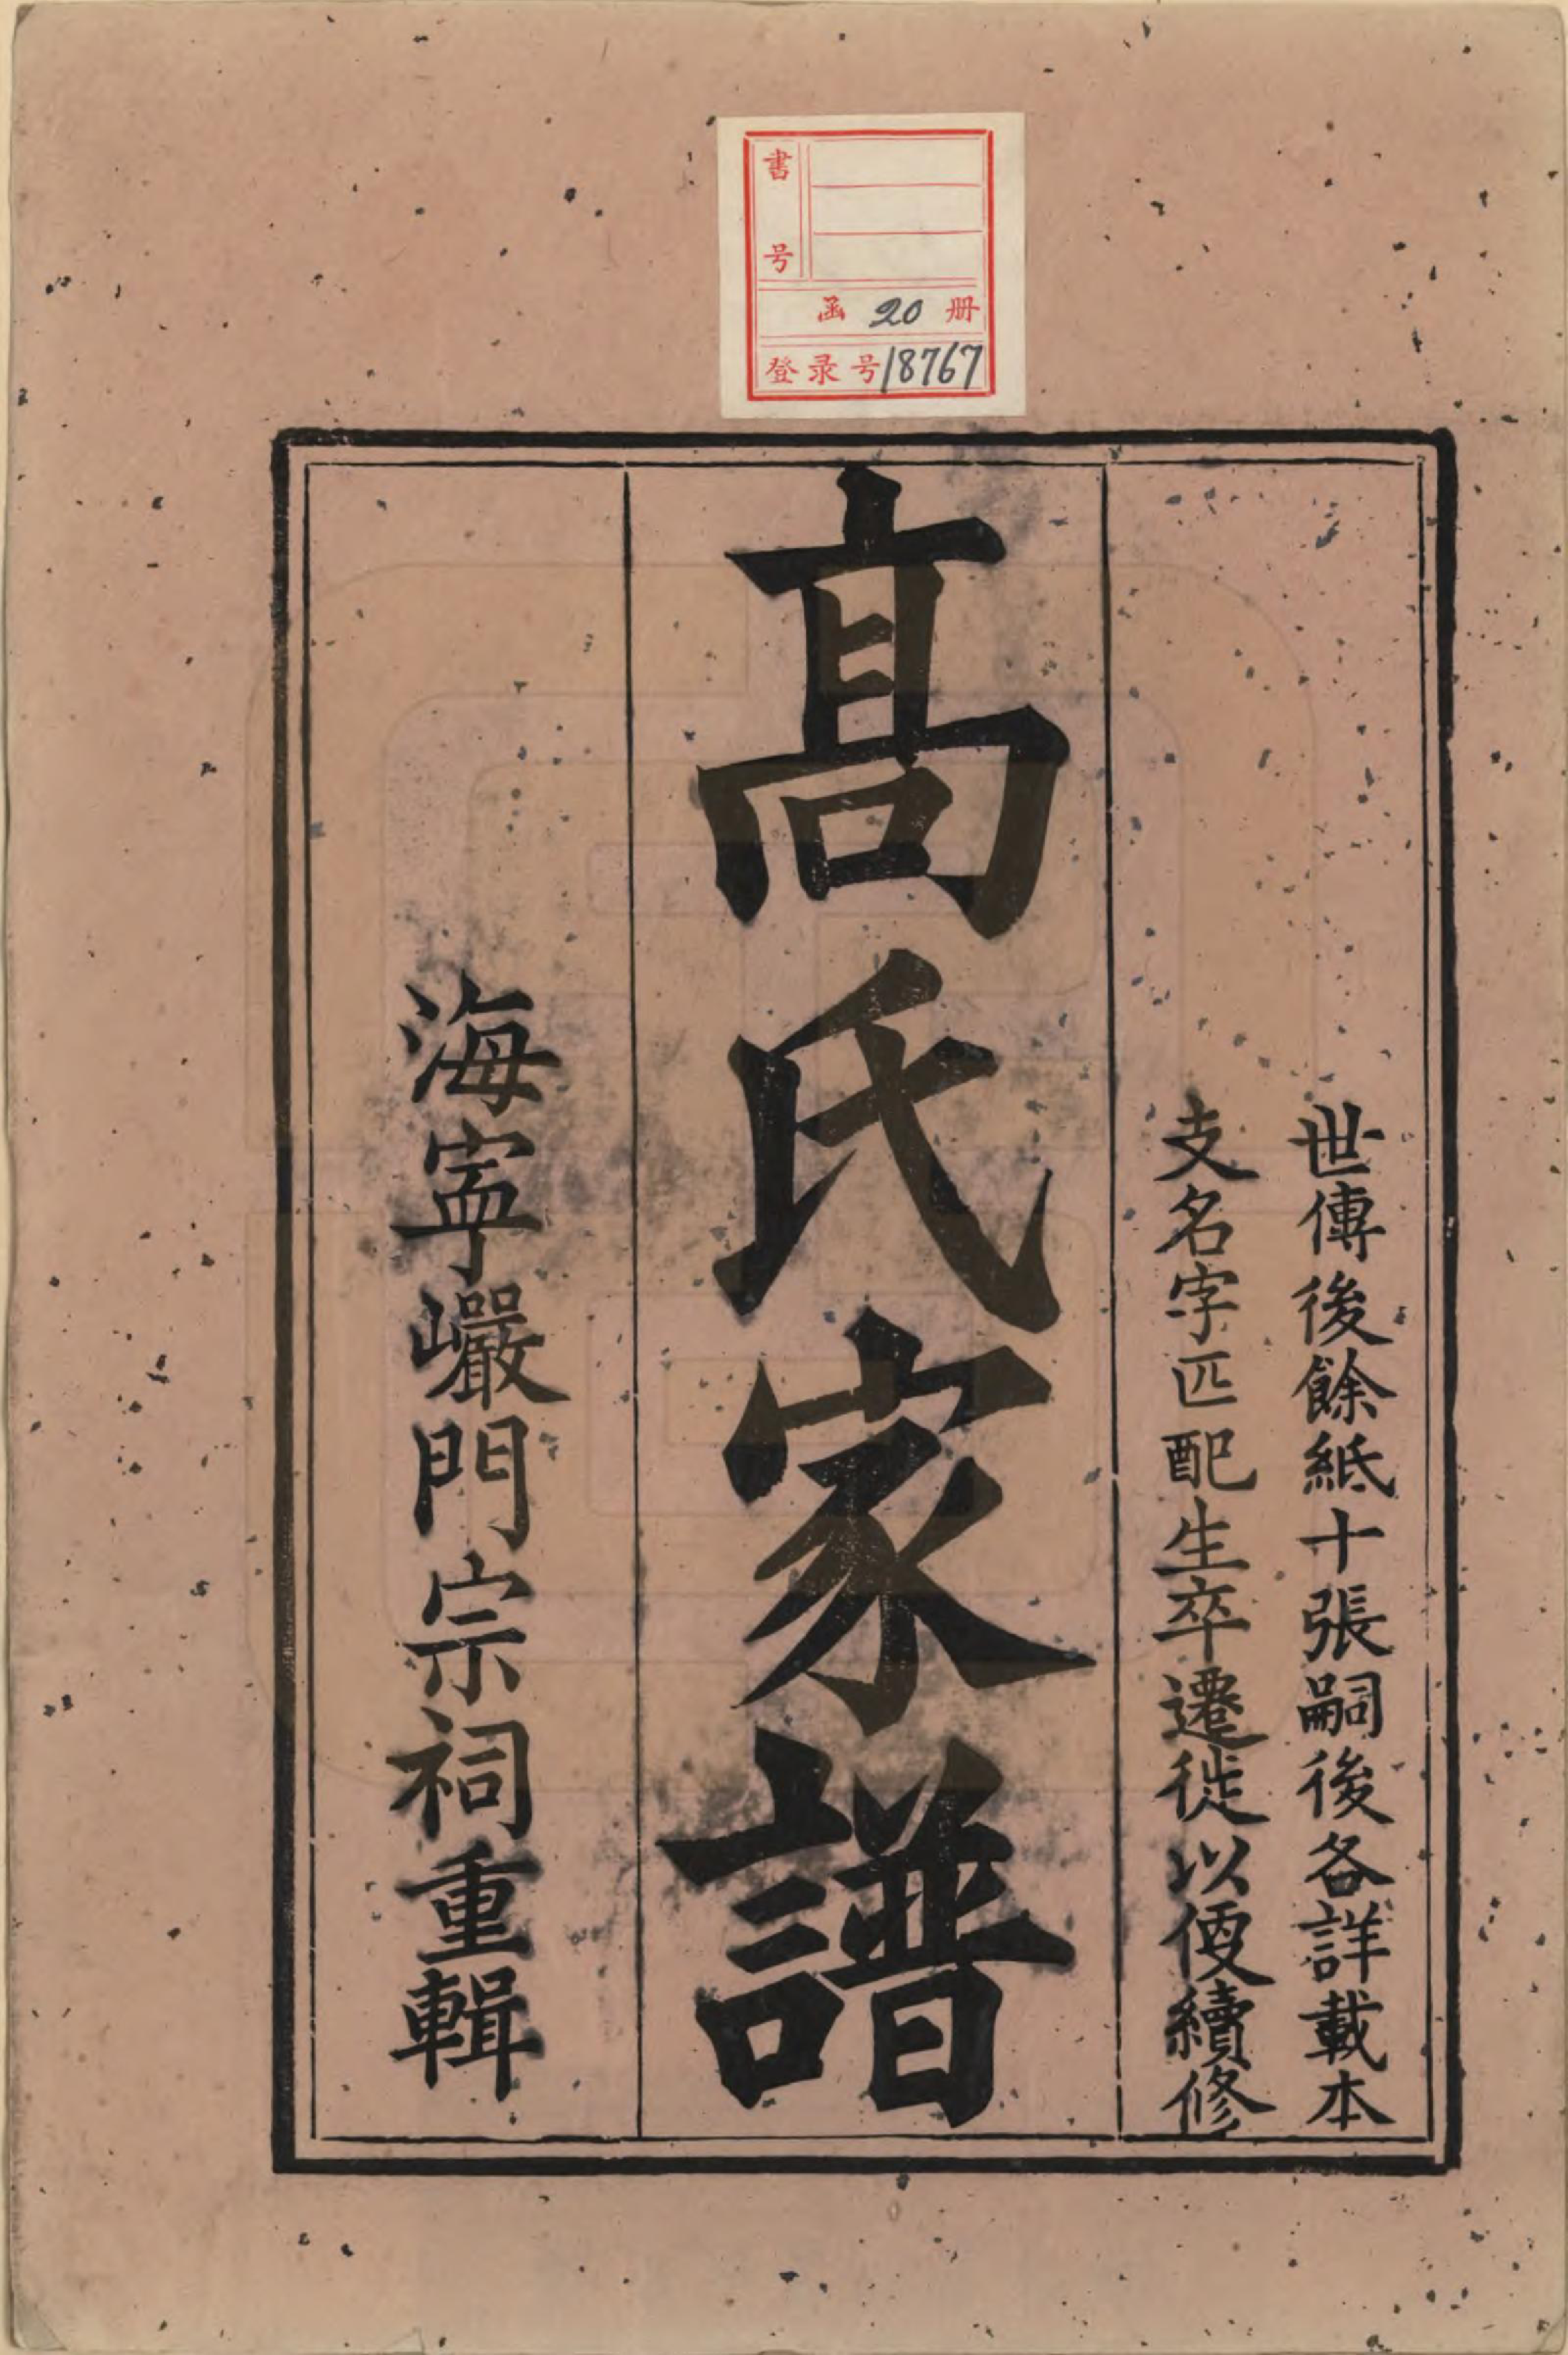 書号
函 20 册
登录号 18767
世傳後餘紙十張嗣後各詳載本
支名字匹配生卒遷徙以便續修
髙氏家譜
海寕巗門宗祠重輯